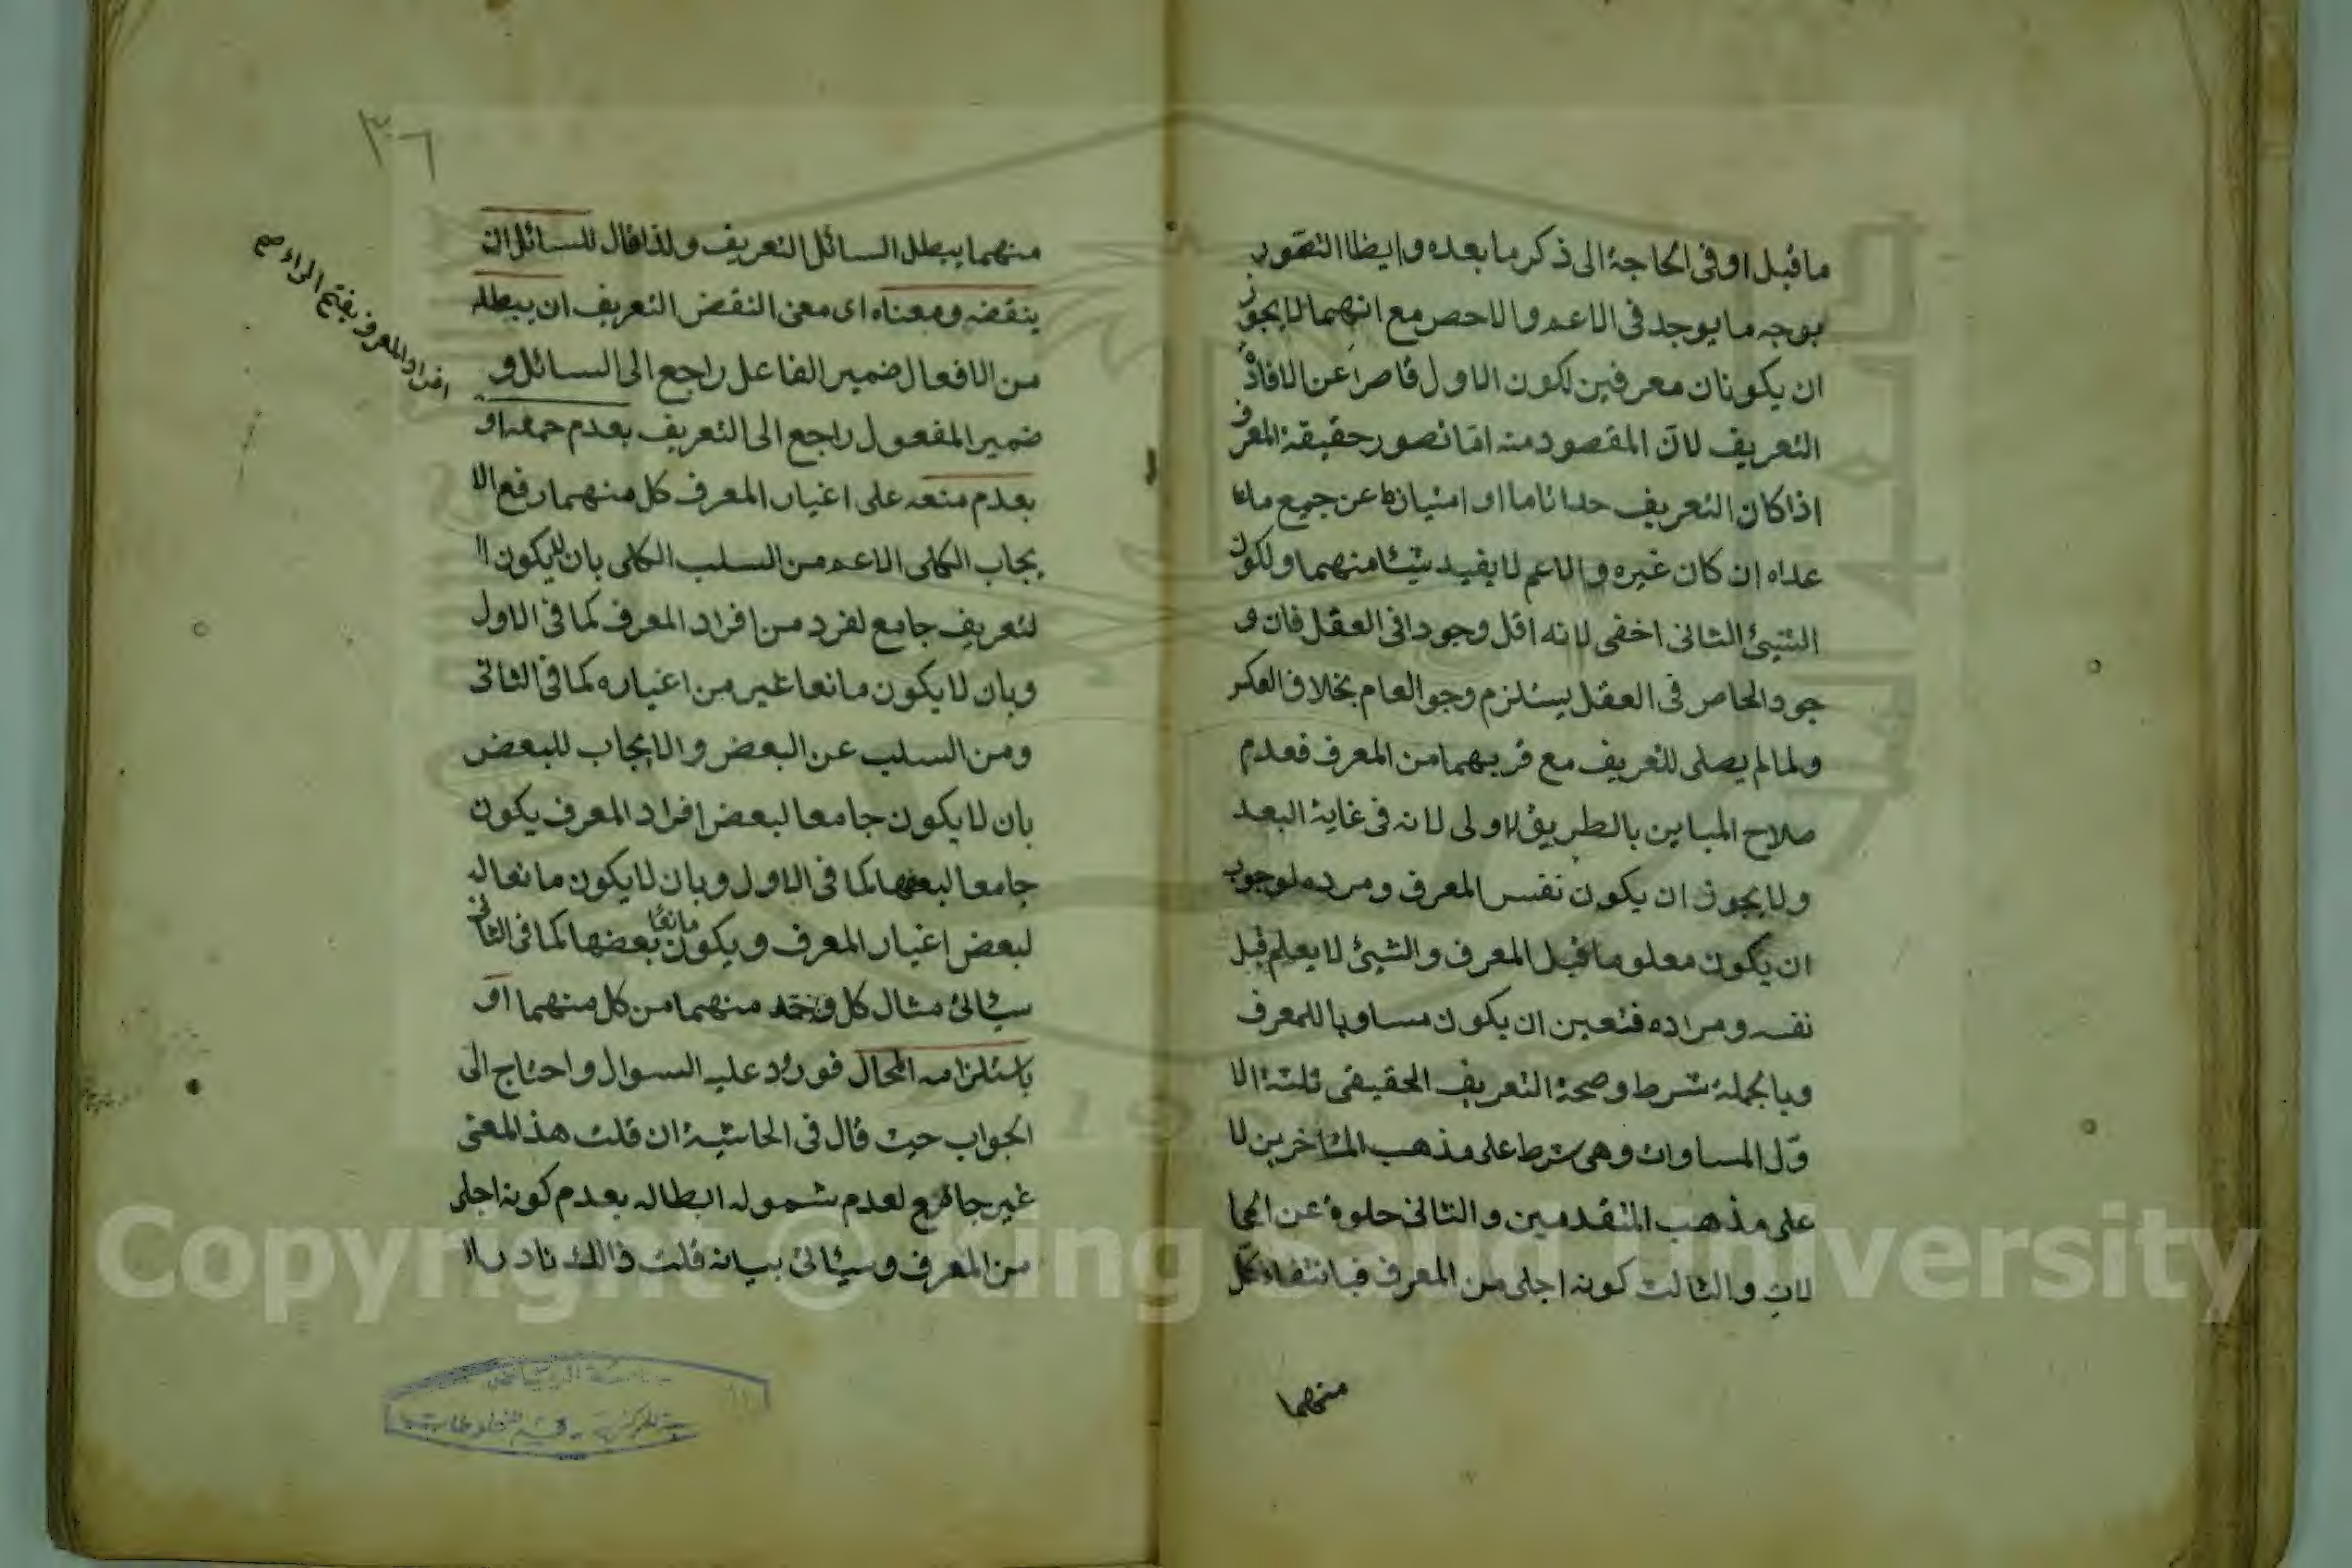 ما قبل او فى الحاجة الى ذكر ما بعده وايظا التصور
بوجه ما يوجد فى الاعم والاحص مع انهما لا يجوز
ان يكونان معرفين لكون الاول قاصرا عن الافادة
التعريف لان المقصود منه اما تصور حقيقة المعرف
اذا كان التعريف حدا تاما او امتيازه عن جميع ما
عداه ان كان غيره والاعم لا يفيد شيئا منهما ولكون
الشيئ الثانى اخفى لانه اقل وجودا فى العقل فان و
جود الخاص فى العقل يستلزم وجو العام بخلاف العكس
ولما لم يصلى للتعريف مع قربهما من المعرف فعدم
صلاح المباين بالطريق الاولى لانه فى غاية البعد
ولا يجوز ان يكون نفس المعرف ومرده لوجوب
ان يكون معلوما قبل المعرف والشيئ لا يعلم قبل
نفسه ومراده فتعين ان يكون مساويا للمعرف
وبالجملة شرط وصحة التعريف الحقيقى ثلثة الا
ول المساوات وهى شرط على مذهب المتاخرين لا
على مذهب المتقدمين والثانى خلوة عن المحا
لات والثالث كونه اجلى من المعرف فبانتفاء كل
منهما
٣٠٦
منهما يبطل السائل التعريف ولذا قال للسائل ان
ينقضه ومعناه اى معنى النقض التعريف ان يبطله
من الافعال ضمير الفاعل راجع الى السائل و
ضمير المفعول راجع الى التعريف بعدم جمعه او
بعدم منعه على اغيار المعرف كل منهما رفع الا
يجاب الكلى الاعم من السلب الكلى بان لا يكون ا
لتعريف جامع لفرد من افراد المعرف كما فى الاول
وبان لا يكون مانعا غير من اغياره كما فى الثانى
ومن السلب عن البعض والايجاب للبعض
بان لا يكون جامعا لبعض افراد المعرف يكون
جامعا لبعضها كما فى الاول وبان لا يكون مانعا له
لبعض اغيار المعرف ويكون مانعا بعضها كما فى الثانى
سيأتى مثال كل منهما من كل منهما او
باستلزامه المحال فورود عليه السوال واحتاج الى
الجواب حيث قال فى الحاشية ان قلت هذ المعنى
غير جامع لعدم شموله ابطاله بعدم كونه اجلى
من المعرف وسيأتى بيانه قلت ذالك نادر ا
افراد المعرف بفتح الراء صح